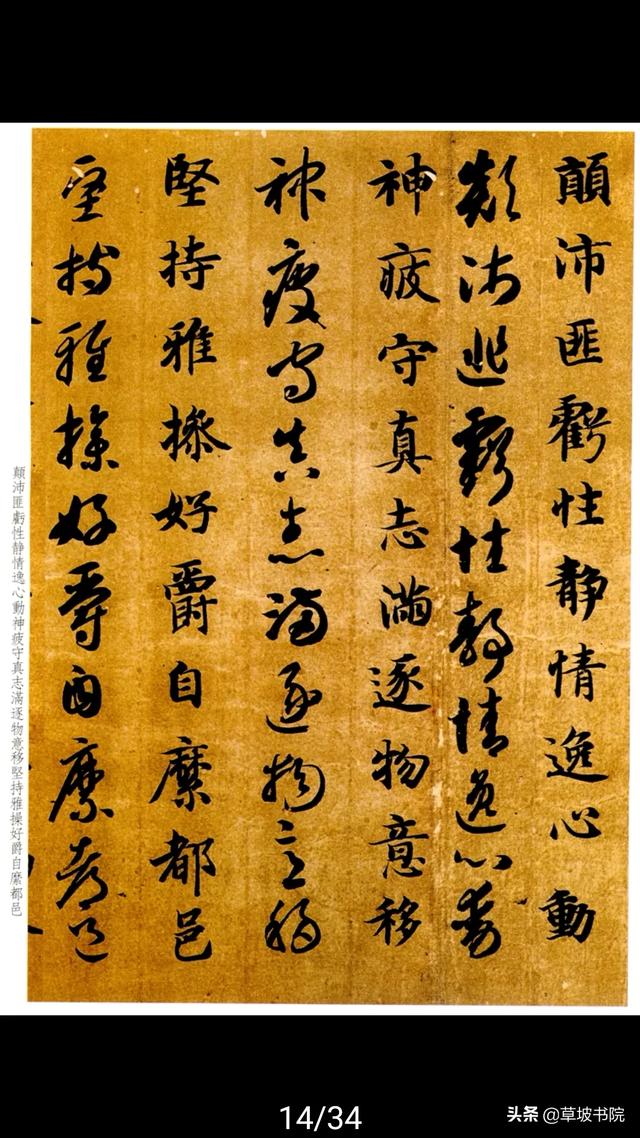 顛沛匪虧性静情逸心動
顛沛匪虧性静情逸心動
神疲守真志滿逐物意移
神疲守真志滿逐物意移
堅持雅操好爵自縻都邑
堅持雅操好爵自縻都邑
顛沛匪虧性静情逸心動神疲守真志滿逐物意移堅持雅操好爵自縻都邑
14/34
头条 @草坡书院